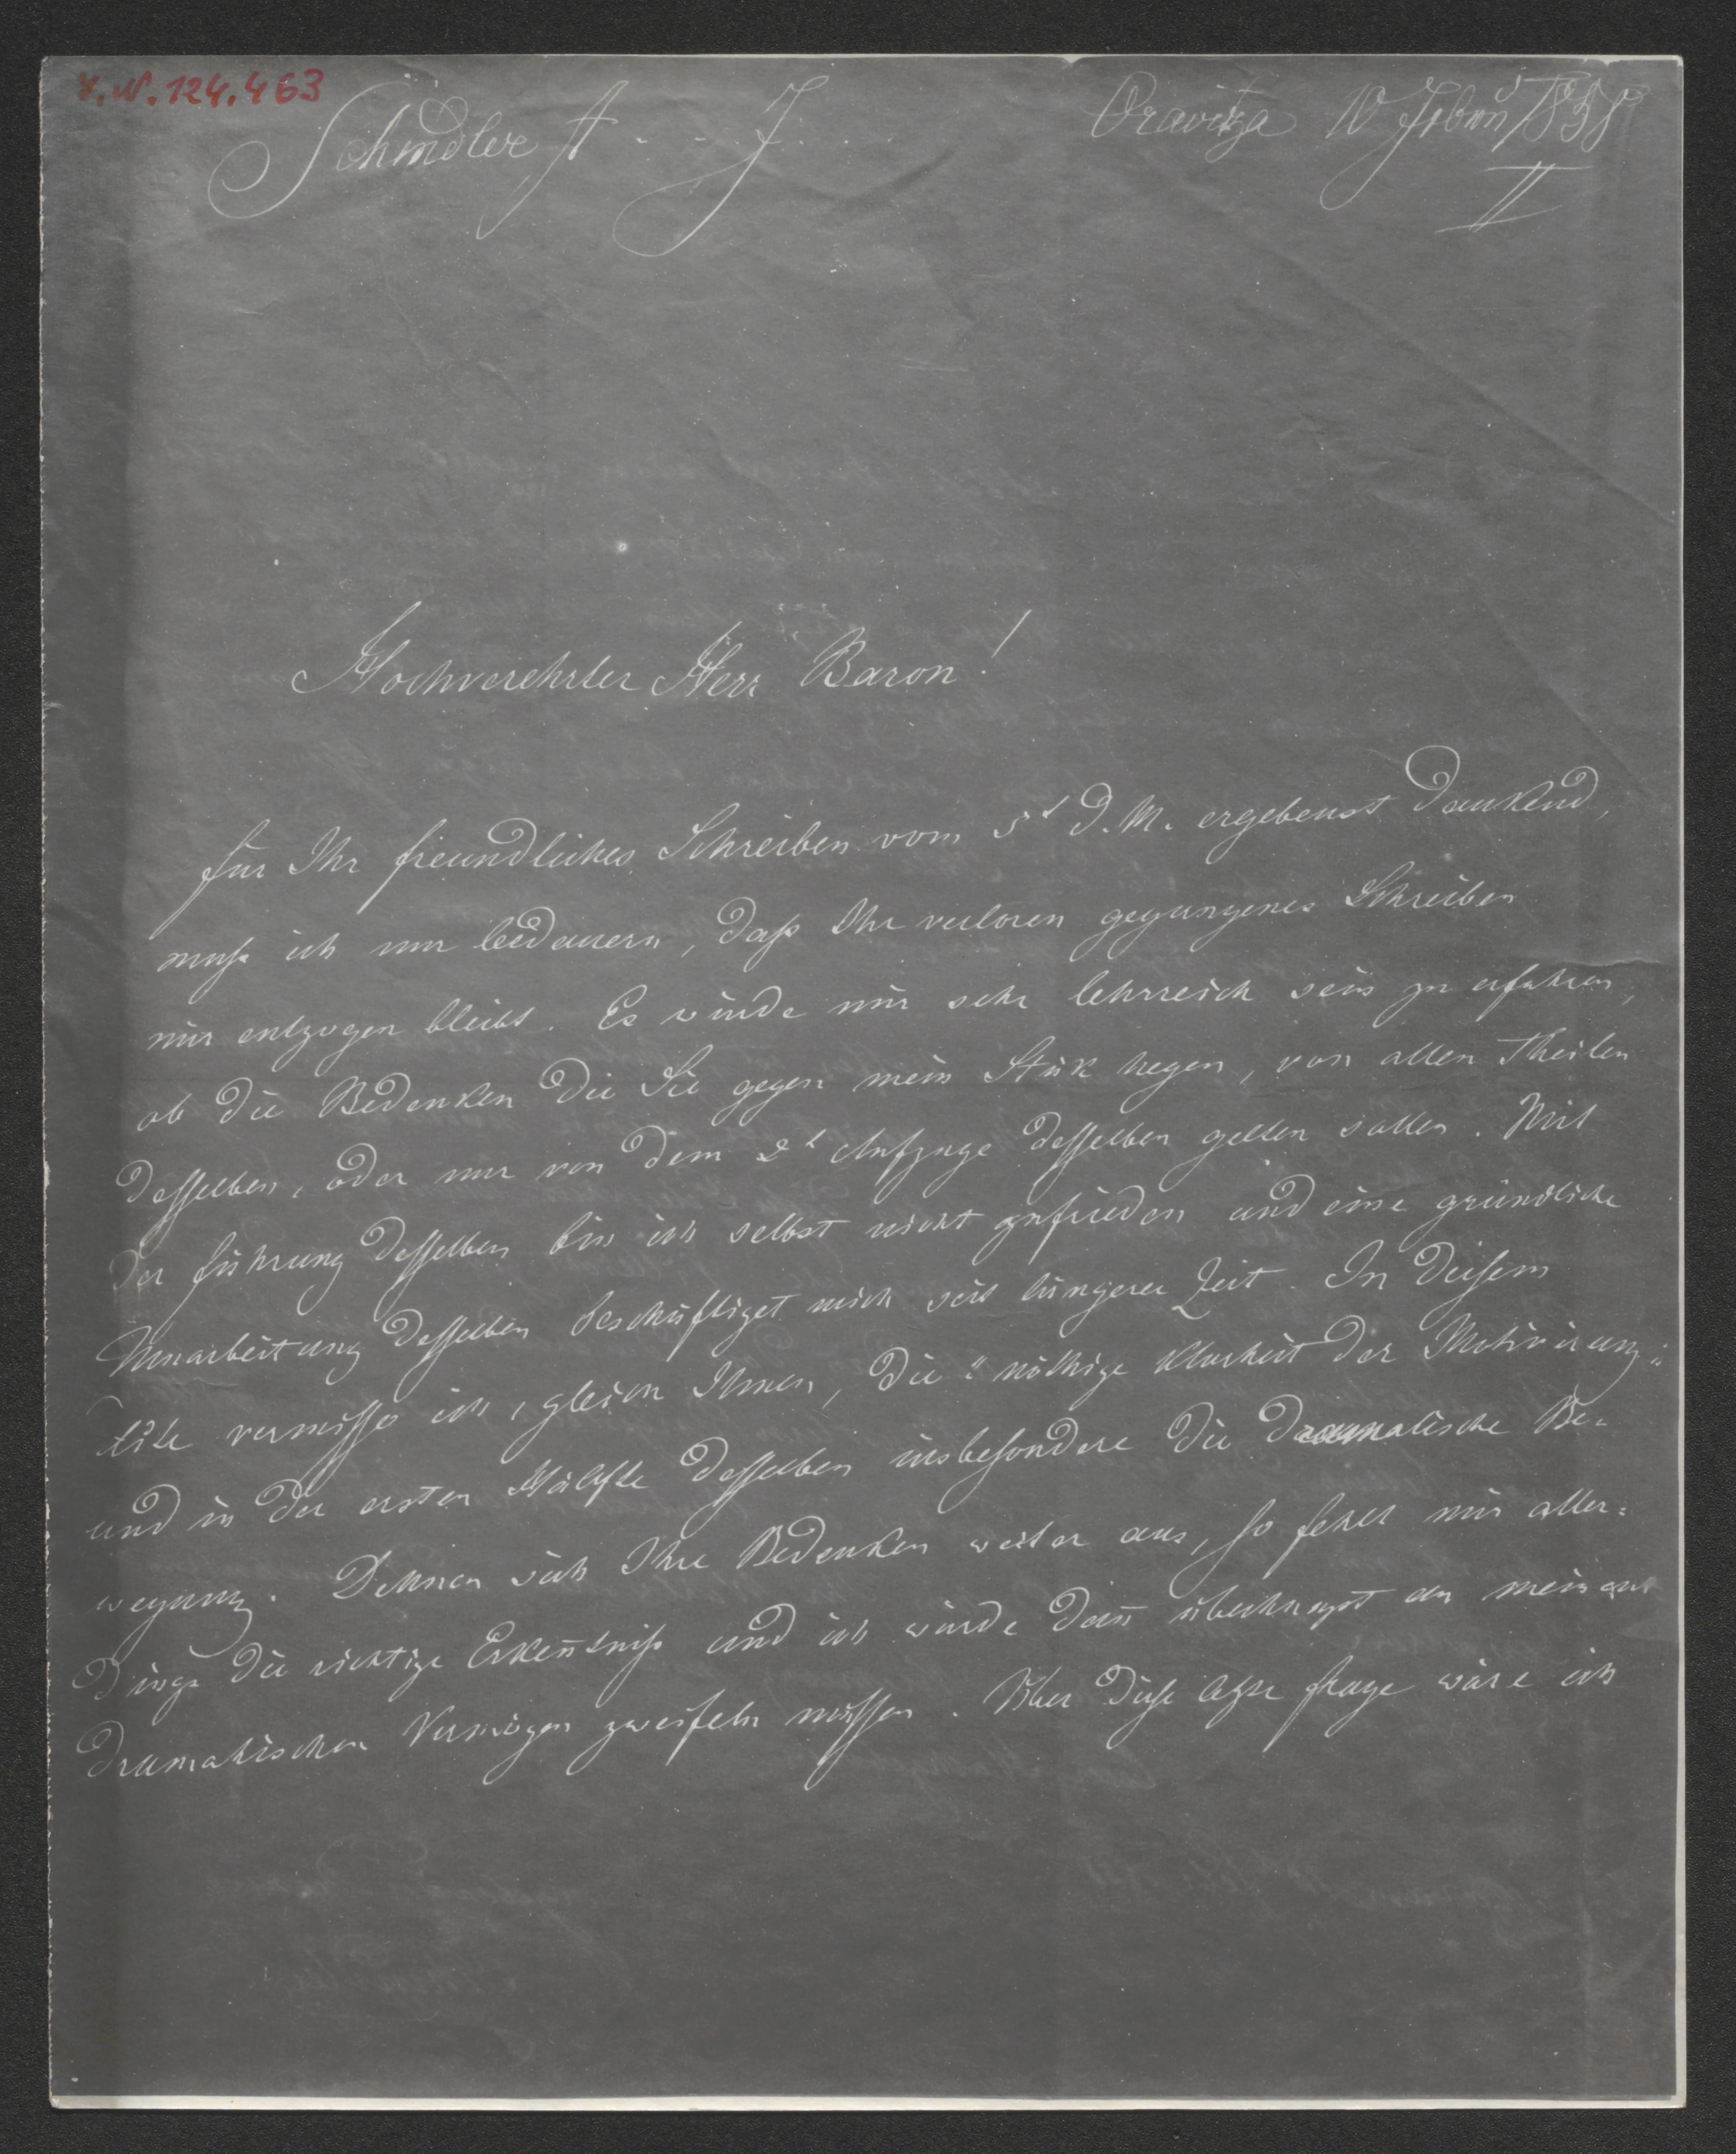 I.N. 124.463
Schindler A . . . J. . . Oravitza 10 Febru 1858
II
Hochverehrter Herr Baron!
für Ihr freundliches Schreiben vom 5t d. M. ergebenst dankend,
muß ich nur bedauern, daß Ihr verloren gegangenes Schreiben
mir entzogen bleibt. Es würde mir sehr lehrreich sein zu erfahren,
ob die Bedenken die Sie gegen mein Stük hegen, von allen Theilen
desselben, oder nur von dem 2t Aufzuge desselben gelten sollen. Mit
der führung desselben bin ich selbst nicht zufrieden und eine gründliche
Umarbeitung desselben beschäftiget mich seit längerer Zeit. In diesem
Akte vermisse ich, gleich Ihnen, die "nöthige Klarheit der Motivirung"
und in der ersten Hälfte desselben insbesondere die dramatische Be=
wegung. Dehnen sich Ihre Bedenken weiter aus, so fehlt mir aller=
dings die richtige Erkeñtniß und ich würde dañ überhaupt an meinem
dramatischen Vermögen zweifeln müssen. Über diese letzte frage wäre ich